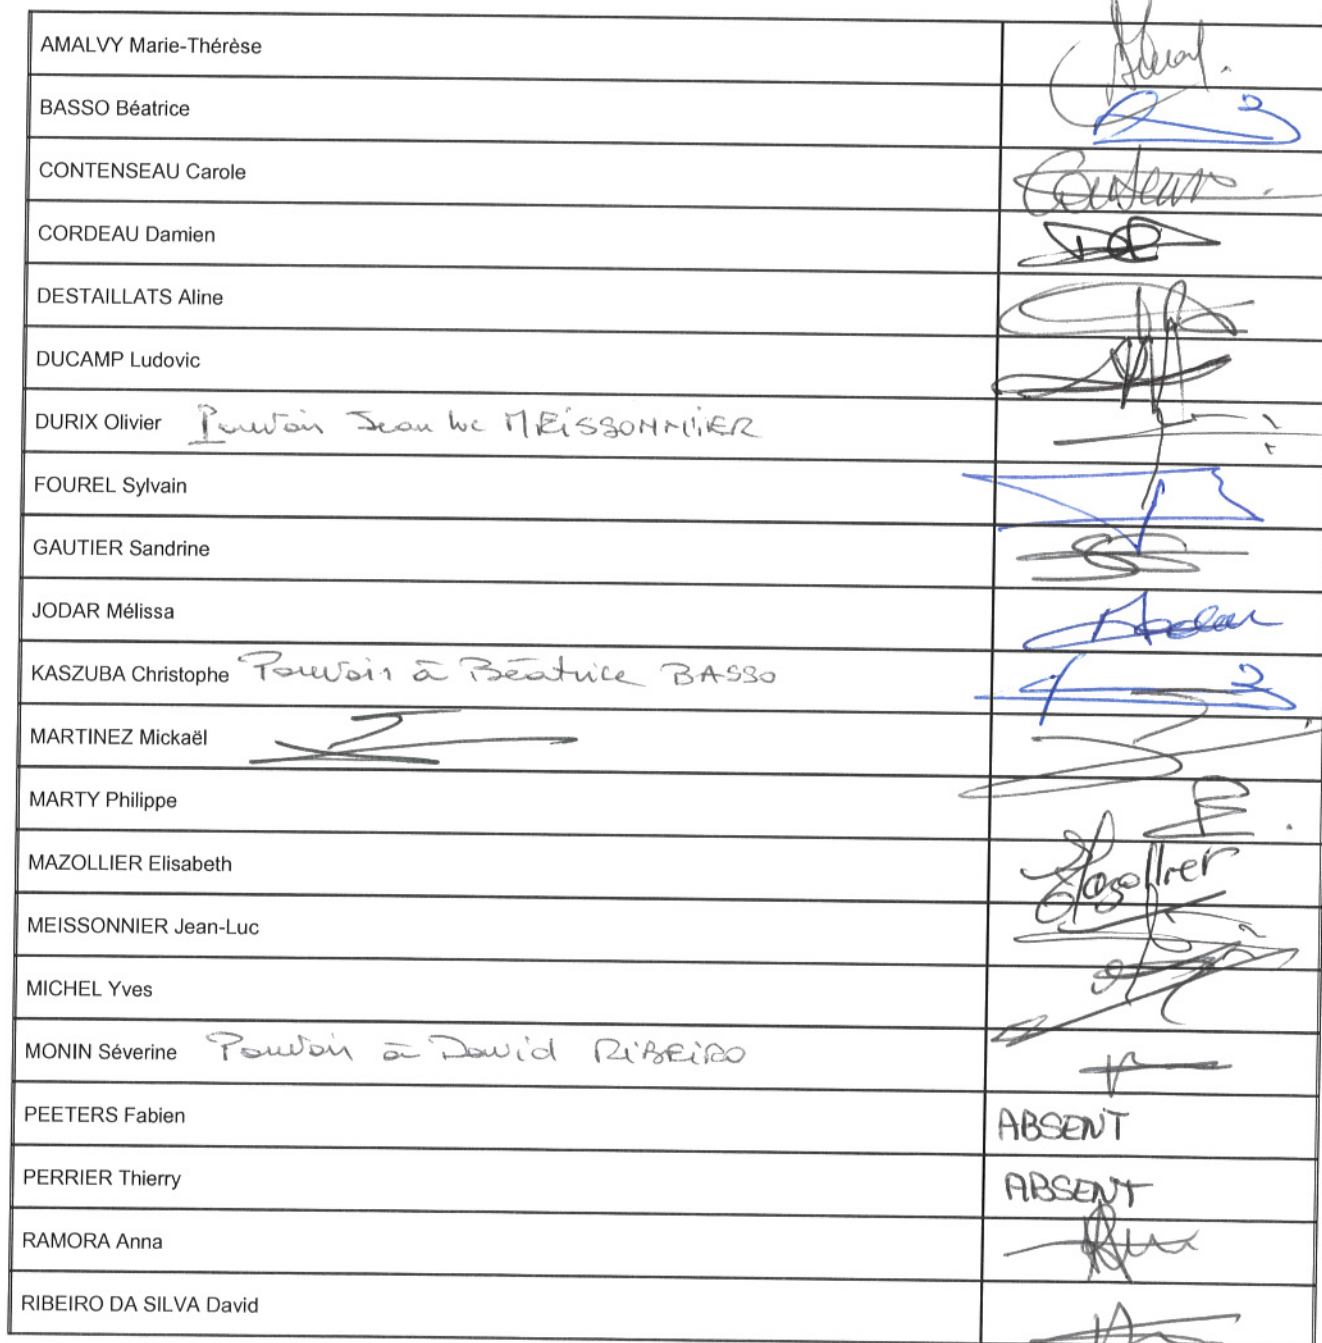 AMALVY Marie-Thérèse
BASSO Béatrice
CONTENSEAU Carole
CORDEAU Damien
DESTAILLATS Aline
DUCAMP Ludovic
DURIX Olivier Pouvoir Jean luc MEISSONNIER
FOUREL Sylvain
GAUTIER Sandrine
JODAR Mélissa
KASZUBA Christophe Pouvoir à Béatrice BASSO
MARTINEZ Mickaël
MARTY Philippe
MAZOLLIER Elisabeth
MEISSONNIER Jean-Luc
MICHEL Yves
MONIN Séverine Pouvoir à David RIBEIRO
PEETERS Fabien ABSENT
PERRIER Thierry ABSENT
RAMORA Anna
RIBEIRO DA SILVA David